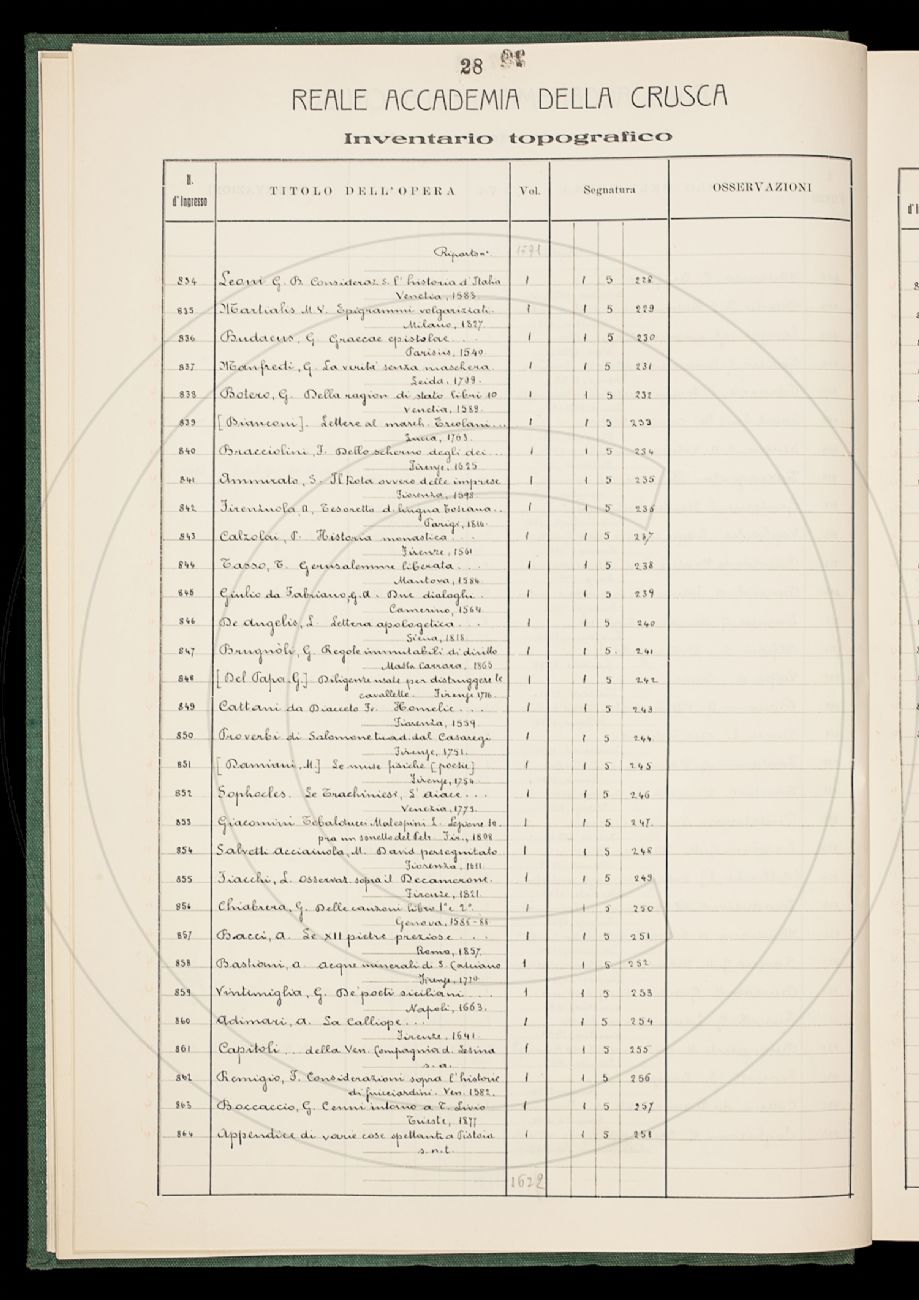 28
REALE ACCADEMIA DELLA CRUSCA
Inventario topografico
N. d'Ingresso TITOLO DELL'OPERA Vol. Segnatura OSSERVAZIONI
Riporto n°. 1591
834 Leoni G. B. Consideraz. s. l'historia d'Italia 1 1 5 228
Venetia, 1583.
835 Martialis M. V. Epigrammi volgarizzati. 1 1 5 229
Milano, 1827.
836 Budaeus, G. Graecae epistolae . . . 1 1 5 230
Parisiis, 1540.
837 Manfredi, G. La verità senza maschera. 1 1 5 231
Leida, 1709.
838 Botero, G. Della ragion di stato libri 10 1 1 5 232
Venetia, 1589.
839 [Bianconi]. Lettere al march. Ercolani... 1 1 5 233
Lucca, 1763.
840 Bracciolini, F. Dello scherno degli dei ... 1 1 5 234
Firenze, 1625
841 Ammirato, S. Il Rota ovvero delle imprese 1 1 5 235
Fiorenza, 1598.
842 Firenzuola, A. Tesoretto d. lingua toscana.. 1 1 5 236
Parigi, 1816.
843 Calzolai, P. Historia monastica . . . 1 1 5 237
Firenze, 1561
844 Tasso, T. Gerusalemme liberata . . . 1 1 5 238
Mantova, 1584.
845 Giulio da Fabriano, G. A. Due dialoghi. . 1 1 5 239
Camerino, 1564.
846 De Angelis, L. Lettera apologetica . . . 1 1 5 240
Siena, 1818.
847 Brugnòli, G. Regole immutabili di diritto 1 1 5. 241
Massa Carrara, 1863
848 [Del Papa, G.] Diligenze usate per distruggere le 1 1 5 242
cavallette. Firenze 1716.
849 Cattani da Diacceto Fr. Homelie . . . 1 1 5 243
Fiorenza, 1559.
850 Proverbi di Salomone trad. dal Casaregi 1 1 5 244
Firenze, 1751.
851 [Damiani, M.] Le muse fisiche [poesie] 1 1 5 245
Firenze, 1754.
852 Sophocles. Le Trachiniesi, L'Aiace . . . 1 1 5 246
Venezia, 1775.
853 Giacomini Tebalducci Malespini L. Lezione so. 1 1 5 247.
pra un sonetto del Petr. Fir., 1808
854 Salvetti Acciaiuola, M. David perseguitato 1 1 5 248
Fiorenza, 1611.
855 Fiacchi, L. Osservaz. sopra il Decamerone. 1 1 5 249
Firenze, 1821.
856 Chiabrera, G. Delle canzoni libro 1° e 2°. 1 1 5 250
Genova, 1586-88
857 Bacci, A. Le XII pietre preziose . . . 1 1 5 251
Roma, 1857.
858 Bastiani, A. Acque minerali di S. Casciano 1 1 5 252
Firenze, 1770
859 Vintimiglia, G. De' poeti siciliani . . . 1 1 5 253
Napoli, 1663.
860 Adimari, A. La Calliope . . . 1 1 5 254
Firenze, 1641.
861 Capitoli ... della Ven. Compagnia d. Lesina 1 1 5 255
s. a.
862 Remigio, F. Considerazioni sopra l'historie 1 1 5 256
di Guicciardini. Ven. 1582.
863 Boccaccio, G. Cenni intorno a T. Livio 1 1 5 257
Trieste, 1877
864 Appendice di varie cose spettanti a Pistoia 1 1 5 258
s.n.t.
1622